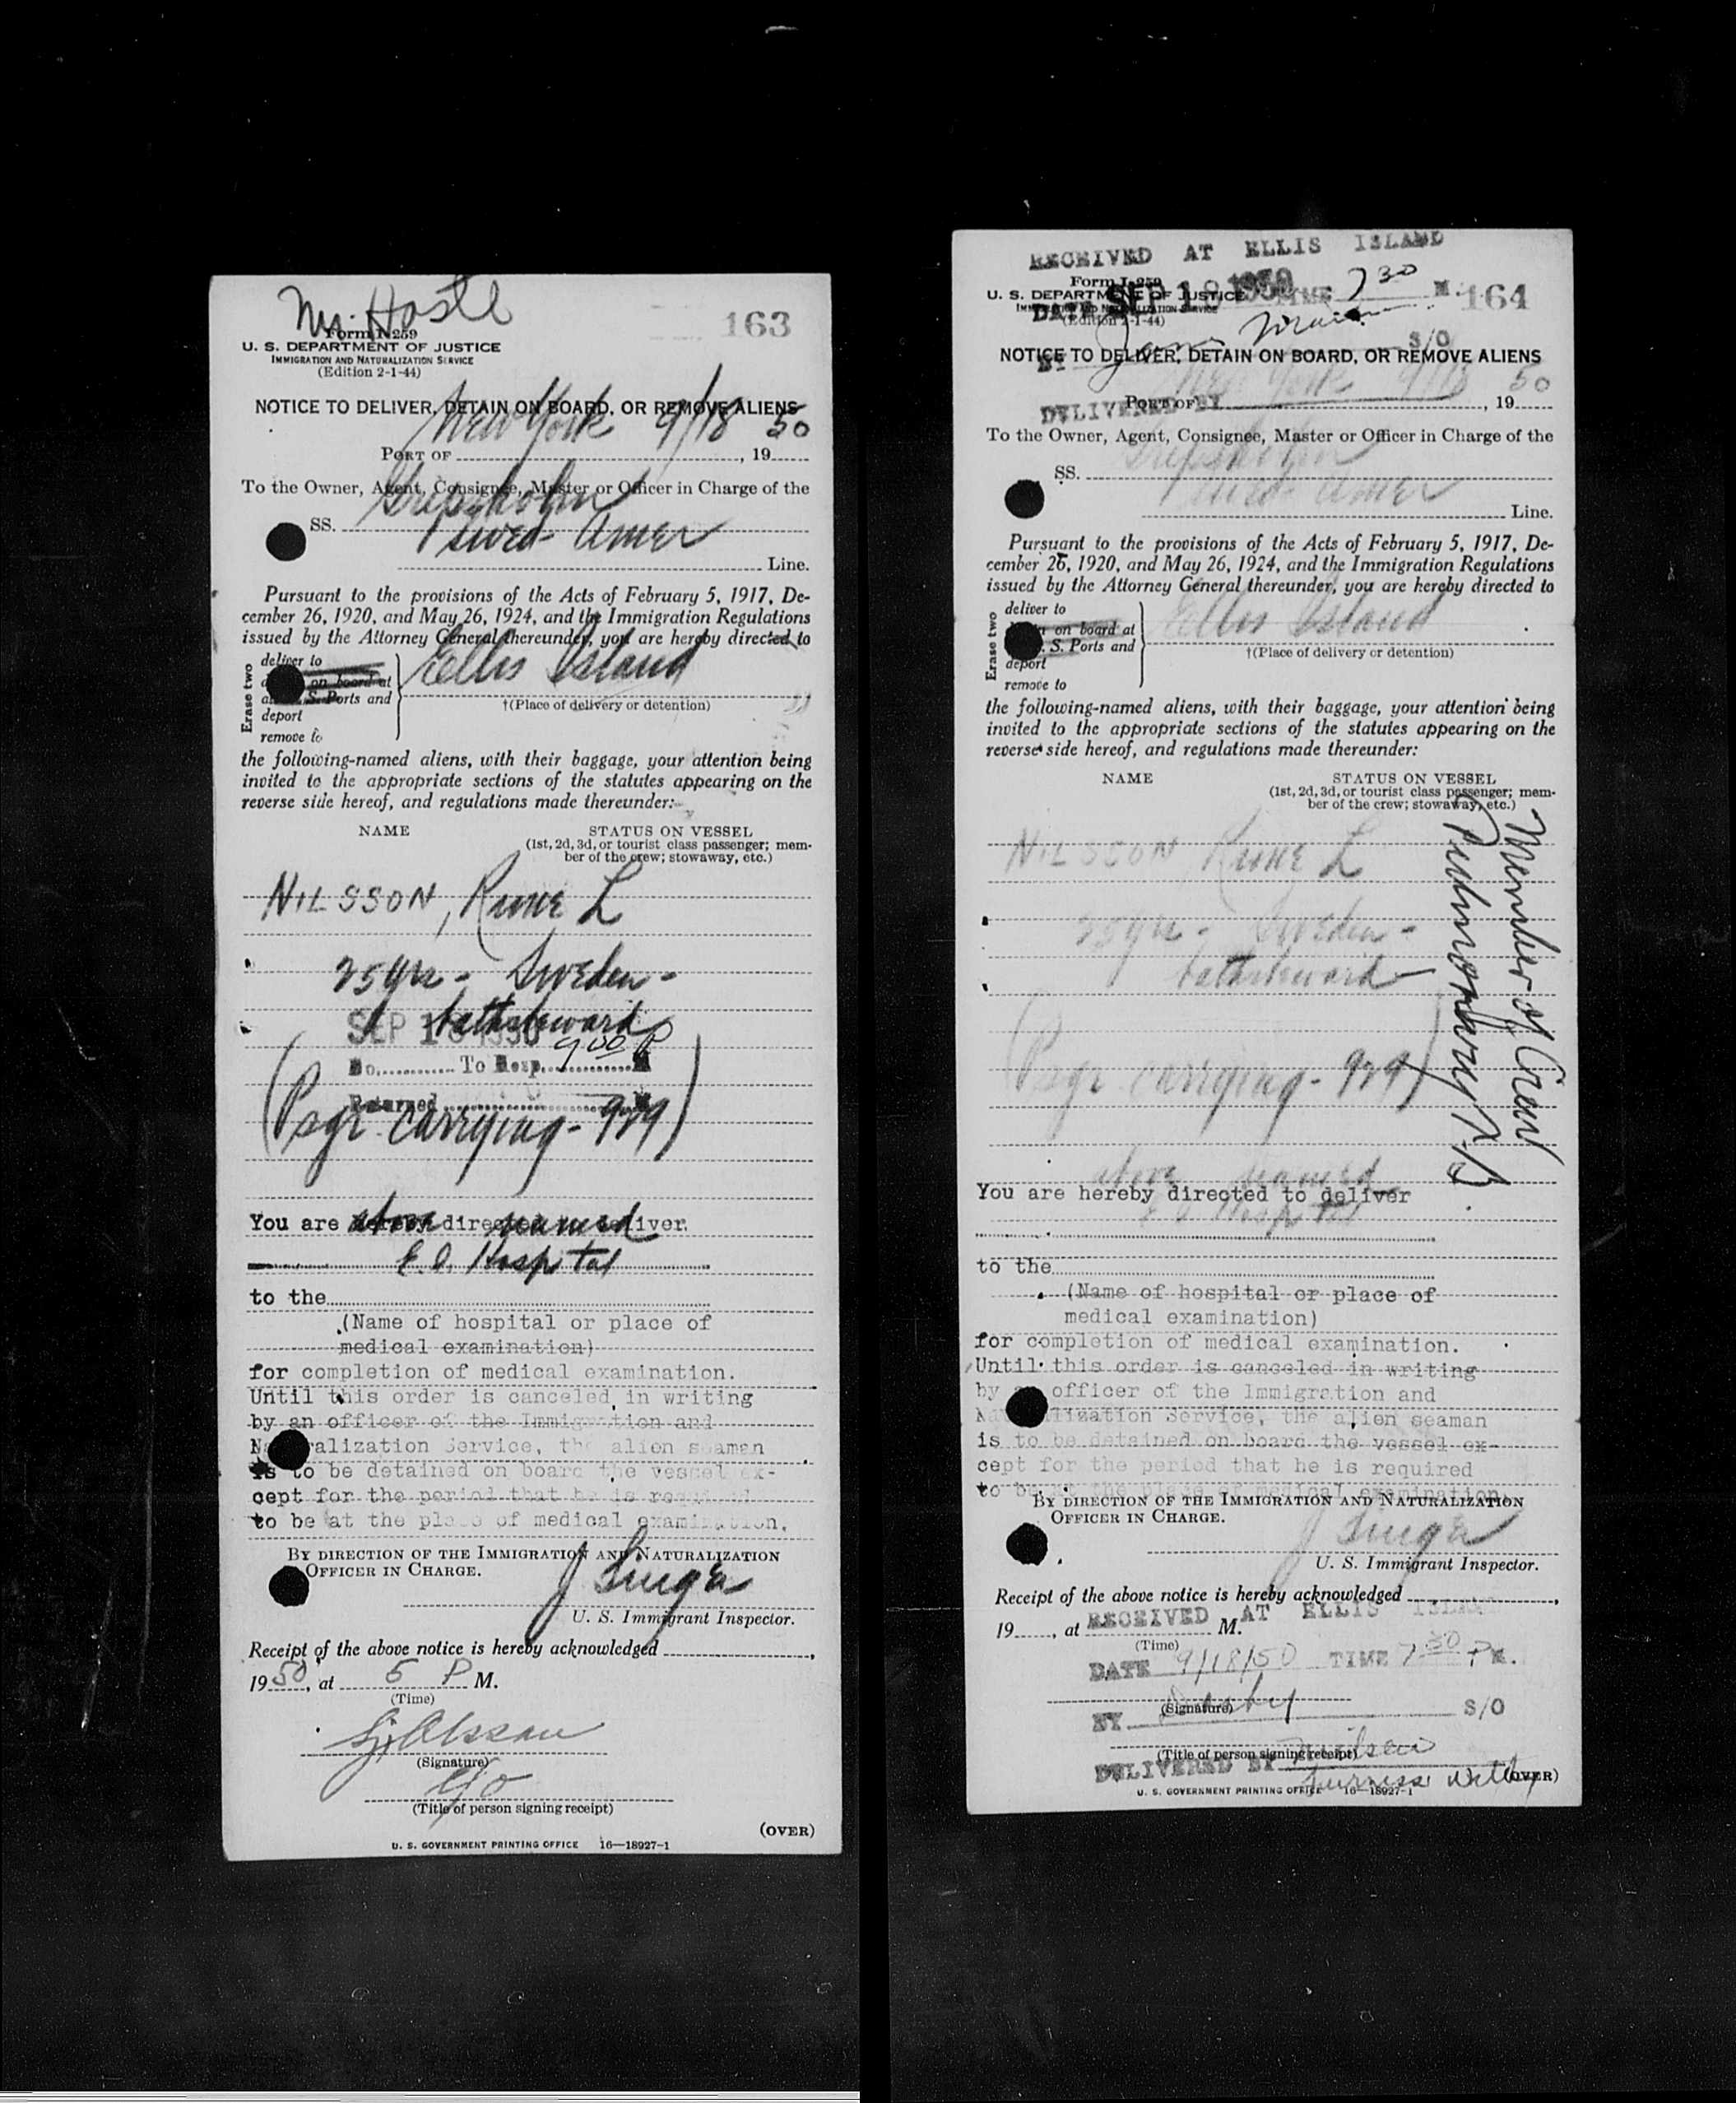 163
Form I-259
U. S. DEPARTMENT OF JUSTICE
IMMIGRATION AND NATURALIZATION SERVICE
(Edition 2-1-44)
NOTICE TO DELIVER, DETAIN ON BOARD, OR REMOVE ALIENS
New York 9/18 50
PORT OF , 19
To the Owner, Agent, Consignee, Master or Officer in Charge of the
SS. Gripsholm
Swed-Amer
Line.
Pursuant to the provisions of the Acts of February 5, 1917, De-
cember 26, 1920, and May 26, 1924, and the Immigration Regulations
issued by the Attorney General thereunder, you are hereby directed to
Erase two
deliver to
on board at
S. Ports and
deport
remove to
Ellis Island
†(Place of delivery or detention)
the following-named aliens, with their baggage, your attention being
invited to the appropriate sections of the statutes appearing on the
reverse side hereof, and regulations made thereunder:
NAME STATUS ON VESSEL
(1st, 2d, 3d, or tourist class passenger; mem-
ber of the crew; stowaway, etc.)
NILSSON, Rune L
25 yrs - Sweden -
bathsteward
SEP 18 1950 9 00 P
No. To Hosp. M
Returned M
(Psgr carrying - 929)
above named
You are hereby directed to deliver
E.I. Hospital
to the
(Name of hospital or place of
medical examination)
for completion of medical examination.
Until this order is canceled in writing
by an officer of the Immigration and
Naturalization Service, the alien seaman
is to be detained on board the vessel ex-
cept for the period that he is required
to be at the place of medical examination.
BY DIRECTION OF THE IMMIGRATION AND NATURALIZATION
OFFICER IN CHARGE.
J Singer
U. S. Immigrant Inspector.
Receipt of the above notice is hereby acknowledged ,
19 50, at 5 P M.
(Time)
Olsson
(Signature)
(Title of person signing receipt)
(OVER)
U. S. GOVERNMENT PRINTING OFFICE 16—18927-1
RECEIVED AT ELLIS ISLAND
Form I-259
U. S. DEPARTMENT OF JUSTICE
IMMIGRATION AND NATURALIZATION SERVICE
(Edition 2-1-44)
DATE SEP 18 1950 TIME 7 30 M.
164
BY S/O
NOTICE TO DELIVER, DETAIN ON BOARD, OR REMOVE ALIENS
New York 9/18 50
DELIVERED BY
PORT OF , 19
To the Owner, Agent, Consignee, Master or Officer in Charge of the
SS. Gripsholm
Swed-Amer
Line.
Pursuant to the provisions of the Acts of February 5, 1917, De-
cember 26, 1920, and May 26, 1924, and the Immigration Regulations
issued by the Attorney General thereunder, you are hereby directed to
Erase two
deliver to
on board at
S. Ports and
deport
remove to
Ellis Island
†(Place of delivery or detention)
the following-named aliens, with their baggage, your attention being
invited to the appropriate sections of the statutes appearing on the
reverse side hereof, and regulations made thereunder:
NAME STATUS ON VESSEL
(1st, 2d, 3d, or tourist class passenger; mem-
ber of the crew; stowaway, etc.)
NILSSON Rune L
25 yrs - Sweden -
bathsteward
(Psgr carrying - 929)
Member of Crew
Pulmonary T.B
above named
You are hereby directed to deliver
E I Hospital
to the
(Name of hospital or place of
medical examination)
for completion of medical examination.
Until this order is canceled in writing
by officer of the Immigration and
Naturalization Service, the alien seaman
is to be detained on board the vessel ex-
cept for the period that he is required
to be at the place of medical examination.
BY DIRECTION OF THE IMMIGRATION AND NATURALIZATION
OFFICER IN CHARGE.
J Singer
U. S. Immigrant Inspector.
Receipt of the above notice is hereby acknowledged ,
19 , at M.
(Time)
RECEIVED AT ELLIS ISLAND
DATE 9/18/50 TIME 7 30 P M.
(Signature)
BY S/O
(Title of person signing receipt)
DELIVERED BY Nielsen
Furness Withy
(OVER)
U. S. GOVERNMENT PRINTING OFFICE 16—18927-1